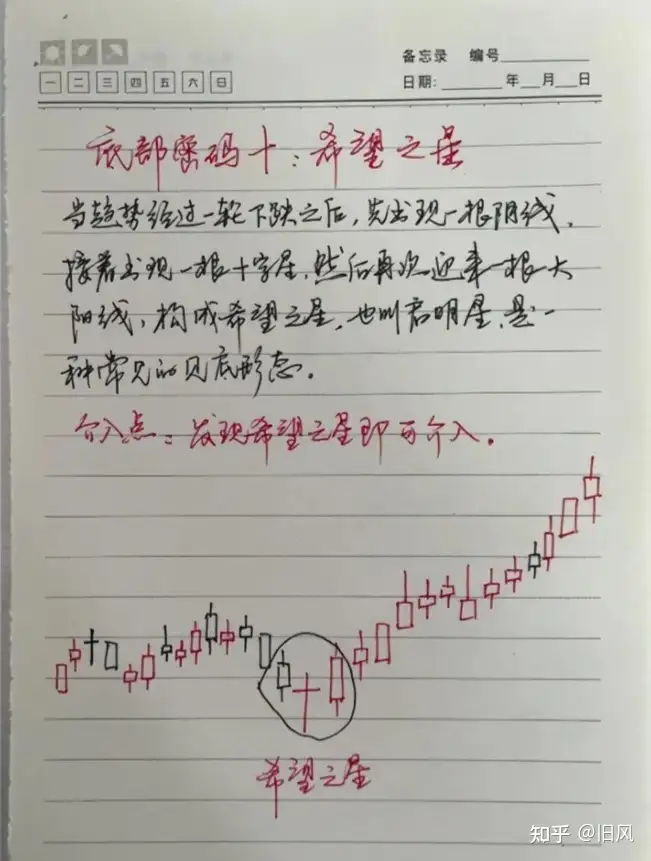 备忘录 编号
一 二 三 四 五 六 日
日期: 年 月 日
底部密码十:希望之星
当趋势经过一轮下跌之后,先出现一根阴线,
接着出现一根十字星,然后再次迎来一根大
阳线,构成希望之星,也叫启明星,是一
种常见的见底形态。
介入点:发现希望之星即可介入。
希望之星
知乎 @旧风